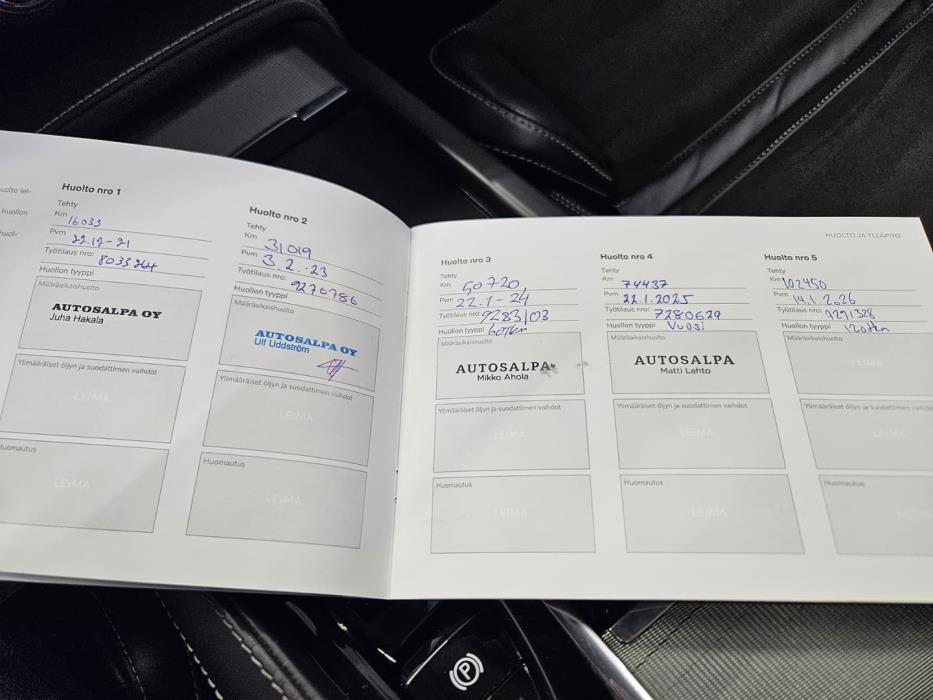 Huolto nro 1
Tehty
Km 16033
Pvm 22.12-21
Työtilaus nro: 8033264
Huollon tyyppi
Määräaikaishuolto
AUTOSALPA OY
Juha Hakala
Ylimääräiset öljyn ja suodattimen vaihdot
LEIMA
Huomautus
LEIMA
Huolto nro 2
Tehty
Km 31019
Pvm 3.2.-23
Työtilaus nro: 9270786
Huollon tyyppi
Määräaikaishuolto
AUTOSALPA OY
Ulf Uddström
Ylimääräiset öljyn ja suodattimen vaihdot
LEIMA
Huomautus
LEIMA
HUOLTO JA YLLÄPITO
Huolto nro 3
Tehty
Km 50720
Pvm 22.1-24
Työtilaus nro: 9283103
Huollon tyyppi 60tkm
Määräaikaishuolto
AUTOSALPA
Mikko Ahola
Ylimääräiset öljyn ja suodattimen vaihdot
LEIMA
Huomautus
LEIMA
Huolto nro 4
Tehty
Km 74437
Pvm 22.1.2025
Työtilaus nro: 7280629
Huollon tyyppi Vuosi
Määräaikaishuolto
AUTOSALPA
Matti Lehto
Ylimääräiset öljyn ja suodattimen vaihdot
LEIMA
Huomautus
LEIMA
Huolto nro 5
Tehty
Km 102450
Pvm 14.1.2026
Työtilaus nro: 7291328
Huollon tyyppi 120tkm
Määräaikaishuolto
LEIMA
Ylimääräiset öljyn ja suodattimen
LEIMA
Huomautus
LEIMA
P